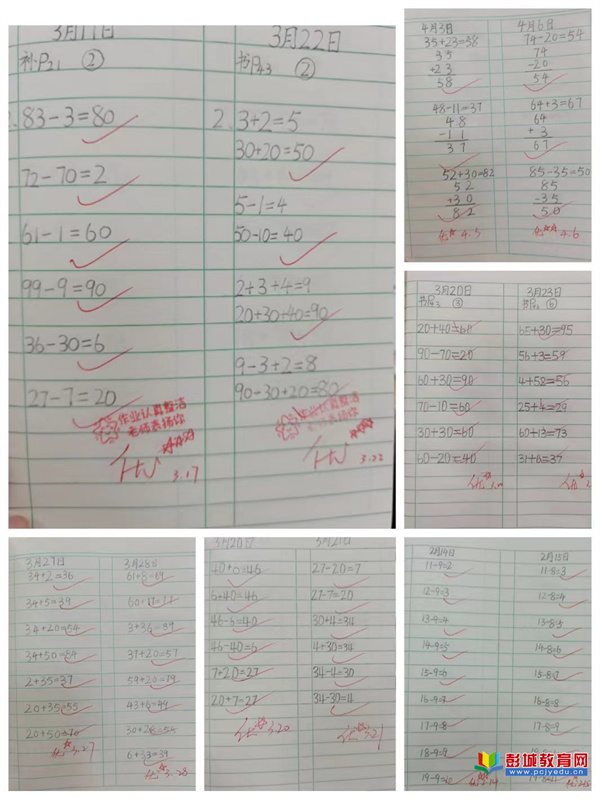 3月17日
补P21 ②
83-3=80
72-70=2
61-1=60
99-9=90
36-30=6
27-7=20
作业认真整洁
老师表扬你
优
3.17
3月22日
书P43 ②
2. 3+2=5
30+20=50
5-1=4
50-10=40
2+3+4=9
20+30+40=90
9-3+2=8
90-30+20=80
作业认真整洁
老师表扬你
优
3.22
4月3日
35+23=58
35
+23
58
48-11=37
48
-11
37
52+30=82
52
+30
82
优 4.3
4月6日
74-20=54
74
-20
54
64+3=67
64
+3
67
85-35=50
85
-35
50
优 4.6
3月20日
书P43 ③
20+40=60
90-70=20
60+30=90
70-10=60
30+30=60
60-20=40
优
3月23日
65+30=95
56+3=59
4+52=56
25+4=29
60+13=73
31+6=37
优
3月27日
34+2=36
34+5=39
34+20=54
34+50=84
2+35=37
20+35=55
20+50=70
优 3.27
3月28日
37+20=57
6+33=39
优 3.28
3月20日
40+6=46
6+40=46
46-6=40
46-40=6
7+20=27
20+7=27
优 3.20
3月21日
27-20=7
27-7=20
30+4=34
4+30=34
34-4=30
34-30=4
优 3.21
2月14日
11-9=2
12-9=3
13-9=4
14-9=5
15-9=6
16-9=7
17-9=8
18-9=9
19-9=10
2月15日
11-8=3
12-8=4
13-8=5
14-8=6
15-8=7
16-8=8
17-8=9
彭城教育网
www.pcjyedu.cn